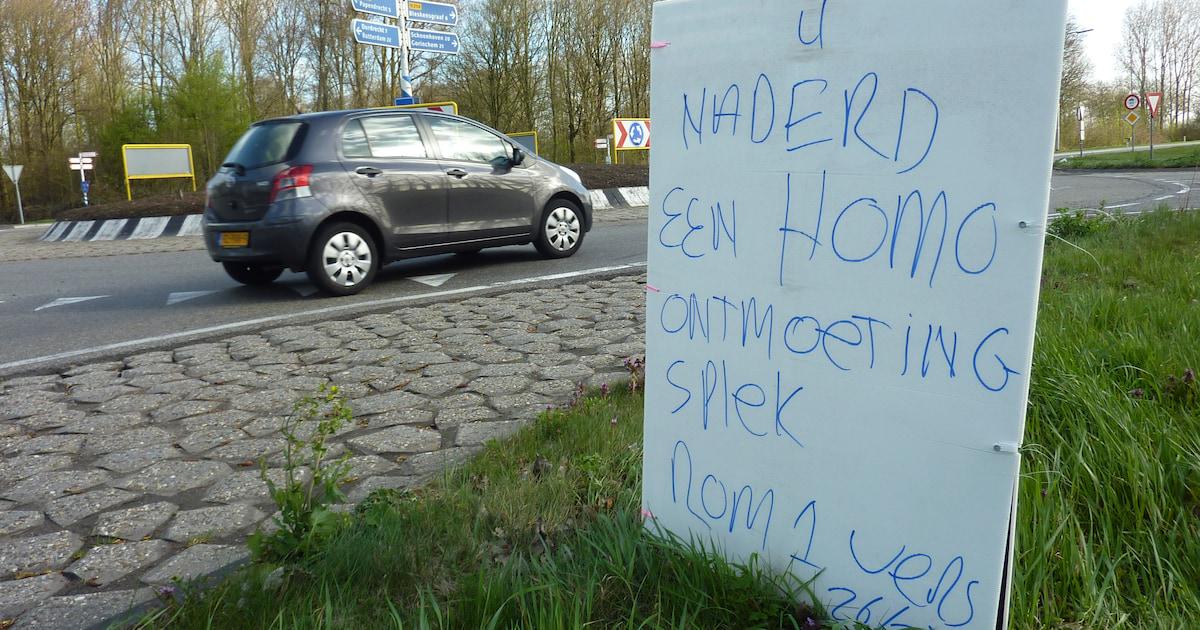 Papendrecht
Bleskensgraaf 6
Dordrecht
Rotterdam
Schoonhoven
Gorinchem
U
NADERD
EEN HOMO
ONTMOETiNG
SPlek
Rom 1 vers
26